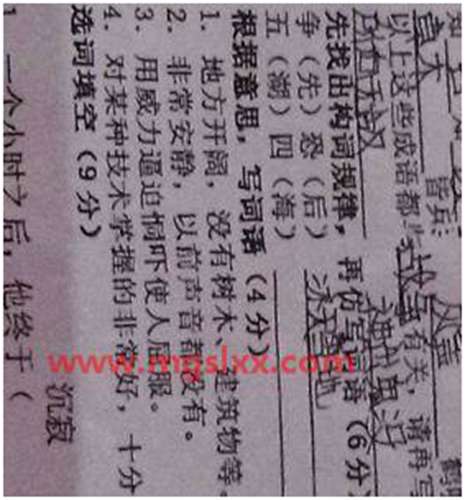 皆兵;
以上这些成语都与战争有关,请再写
先找出构词规律,再仿写词语(6分
争(先)恐(后)
五(湖)四(海)
根据意思,写词语(4分)
1. 地方开阔,没有树木、建筑物等。
2. 非常安静,以前声音都没有。
3. 用威力逼迫恫吓使人屈服。
4. 对某种技术掌握的非常好,十分
选词填空(9分)
沉寂
1 一个小时之后,他终于(
www.mgslxx.com